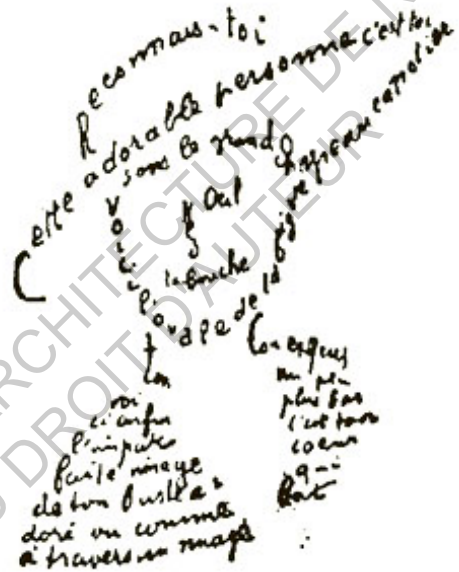 Reconnais-toi
Cette adorable personne c'est toi
Sous le grand chapeau canotier
Oeil
Nez
la bouche
Voici l'ovale de ta figure
ton
Cou exquis
voi
ci enfin
l'impar
faite image
de ton buste a
doré vu comme
à travers un nuage
un peu
plus bas
c'est ton
coeur
qui
bat
ARCHITECTURE DE
DROIT D'AUTEUR